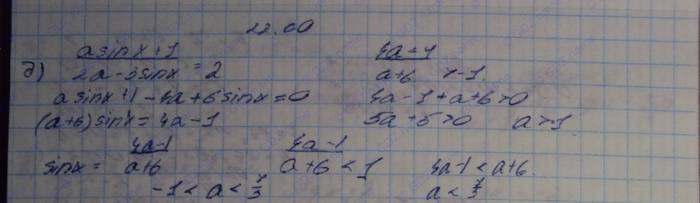 22.60
д) asinx+1 / 2a-3sinx = 2
asinx+1-4a+6sinx=0
(a+6)sinx=4a-1
sinx= 4a-1 / a+6
-1<a<7/3
4a-1 / a+6 >-1
4a-1+a+6>0
5a+5>0 a>-1
4a-1 / a+6 <1
4a-1<a+6
a<7/3